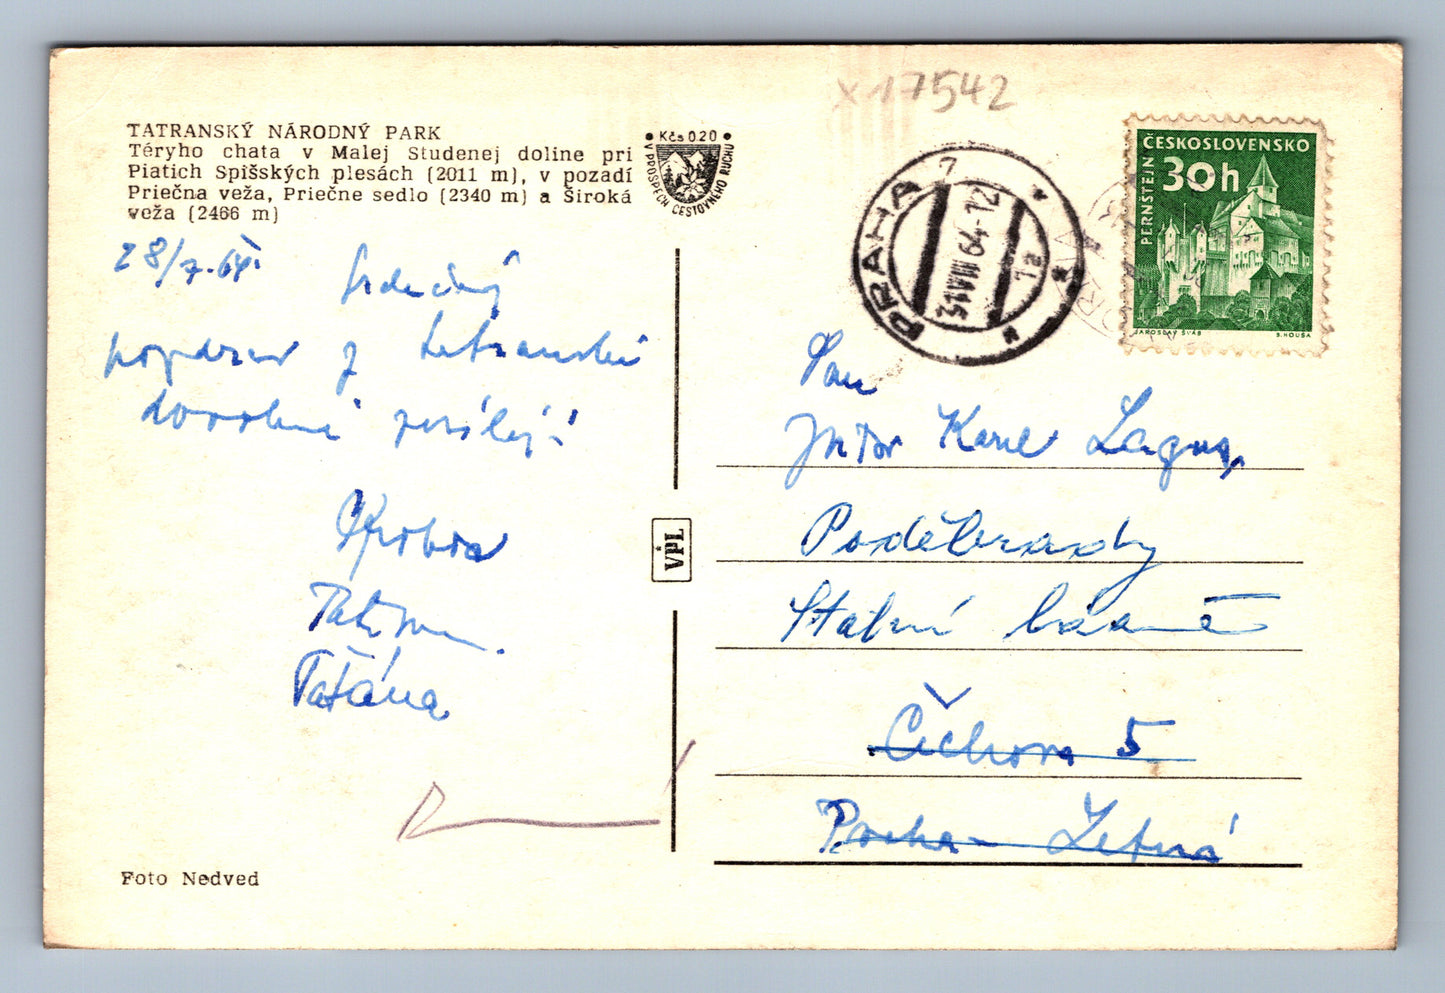 x 17542
TATRANSKÝ NÁRODNÝ PARK
Téryho chata v Malej Studenej doline pri
Piatich Spišských plesách (2011 m), v pozadí
Priečna veža, Priečne sedlo (2340 m) a Široká
veža (2466 m)
• Kčs 0.20 •
V PROSPECH CESTOVNÉHO RUCHU
PRAHA 7
31.VIII 64-12
1a
ČESKOSLOVENSKO
30h
PERNŠTEJN
JAROSLAV ŠVÁB
S. HOUŠA
28/7. 64.
Srdečný
pozdrav z tatranské
dovolené posílají
Tatána
VPL
Foto Nedved
Pan
Karel
Poděbrady
Statní lázně
Čechova 5
Praha - Letná